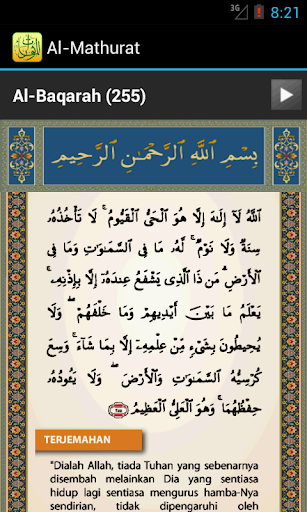 3G 8:21
Al-Mathurat
Al-Baqarah (255)
بِسْمِ ٱللَّهِ ٱلرَّحْمَٰنِ ٱلرَّحِيمِ
ٱللَّهُ لَآ إِلَٰهَ إِلَّا هُوَ ٱلْحَىُّ ٱلْقَيُّومُ ۚ لَا تَأْخُذُهُۥ
سِنَةٌ وَلَا نَوْمٌ ۚ لَّهُۥ مَا فِى ٱلسَّمَٰوَٰتِ وَمَا فِى
ٱلْأَرْضِ ۗ مَن ذَا ٱلَّذِى يَشْفَعُ عِندَهُۥٓ إِلَّا بِإِذْنِهِۦ ۚ
يَعْلَمُ مَا بَيْنَ أَيْدِيهِمْ وَمَا خَلْفَهُمْ ۖ وَلَا
يُحِيطُونَ بِشَىْءٍ مِّنْ عِلْمِهِۦٓ إِلَّا بِمَا شَآءَ ۚ وَسِعَ
كُرْسِيُّهُ ٱلسَّمَٰوَٰتِ وَٱلْأَرْضَ ۖ وَلَا يَـُٔودُهُۥ
حِفْظُهُمَا ۚ وَهُوَ ٱلْعَلِىُّ ٱلْعَظِيمُ ٢٥٥
TERJEMAHAN
"Dialah Allah, tiada Tuhan yang sebenarnya
disembah melainkan Dia yang sentiasa
hidup lagi sentiasa mengurus hamba-Nya
sendirian, tidak dipengaruhi oleh